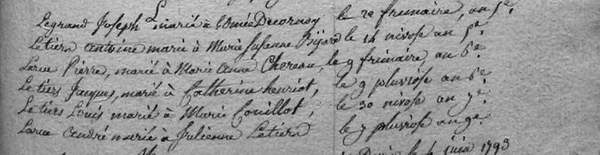 Legrand Joseph L marié à Aimée Decornoy le 2e frimaire, an 5e.
Letiers antoine marié à Marie Susanne Bijard le 14 nivose an 5e
Larue Pierre, marié à Marie Anne Chereau, le 9 frimaire, an 6e.
Letiers Jacques, marié à Catherine henriot, le 9 pluviose an 6e.
Letiers Louis marié à Marie Couillot, le 30 nivose an 7e.
Larue André marié à Julienne Letiers le 7 pluviose an 9e.
juin 1793